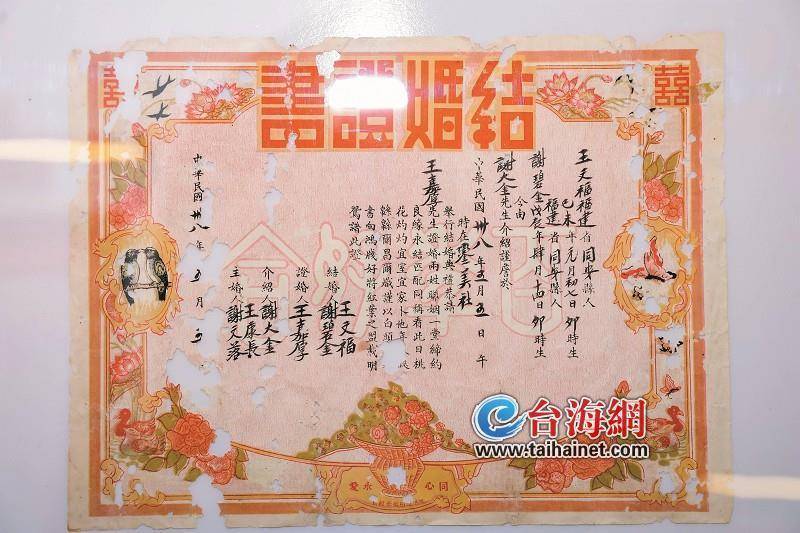 囍
囍
結婚證書
王文福福建省同安縣人
己未年元月初七日卯時生
謝碧金戊辰年肆月十四日卯時生
福建省同安縣人
今由
謝大金先生介紹謹詹於
中華民國卅八年五月五日午
時在
舉行結婚典禮恭請
王嘉厚先生證婚兩姓聯姻一堂締約
良緣永結匹配同稱看此日桃
花灼灼宜室宜家卜他年瓜
綿綿爾昌爾熾謹以白頭
書向鴻牋好將紅葉之盟載明
鴛譜此證
結婚人 王文福
謝碧金
證婚人 王嘉厚
介紹人 謝大金
主婚人 王康長
謝文
中華民國卅八年五月五
同心永愛
台海網
www.taihainet.com